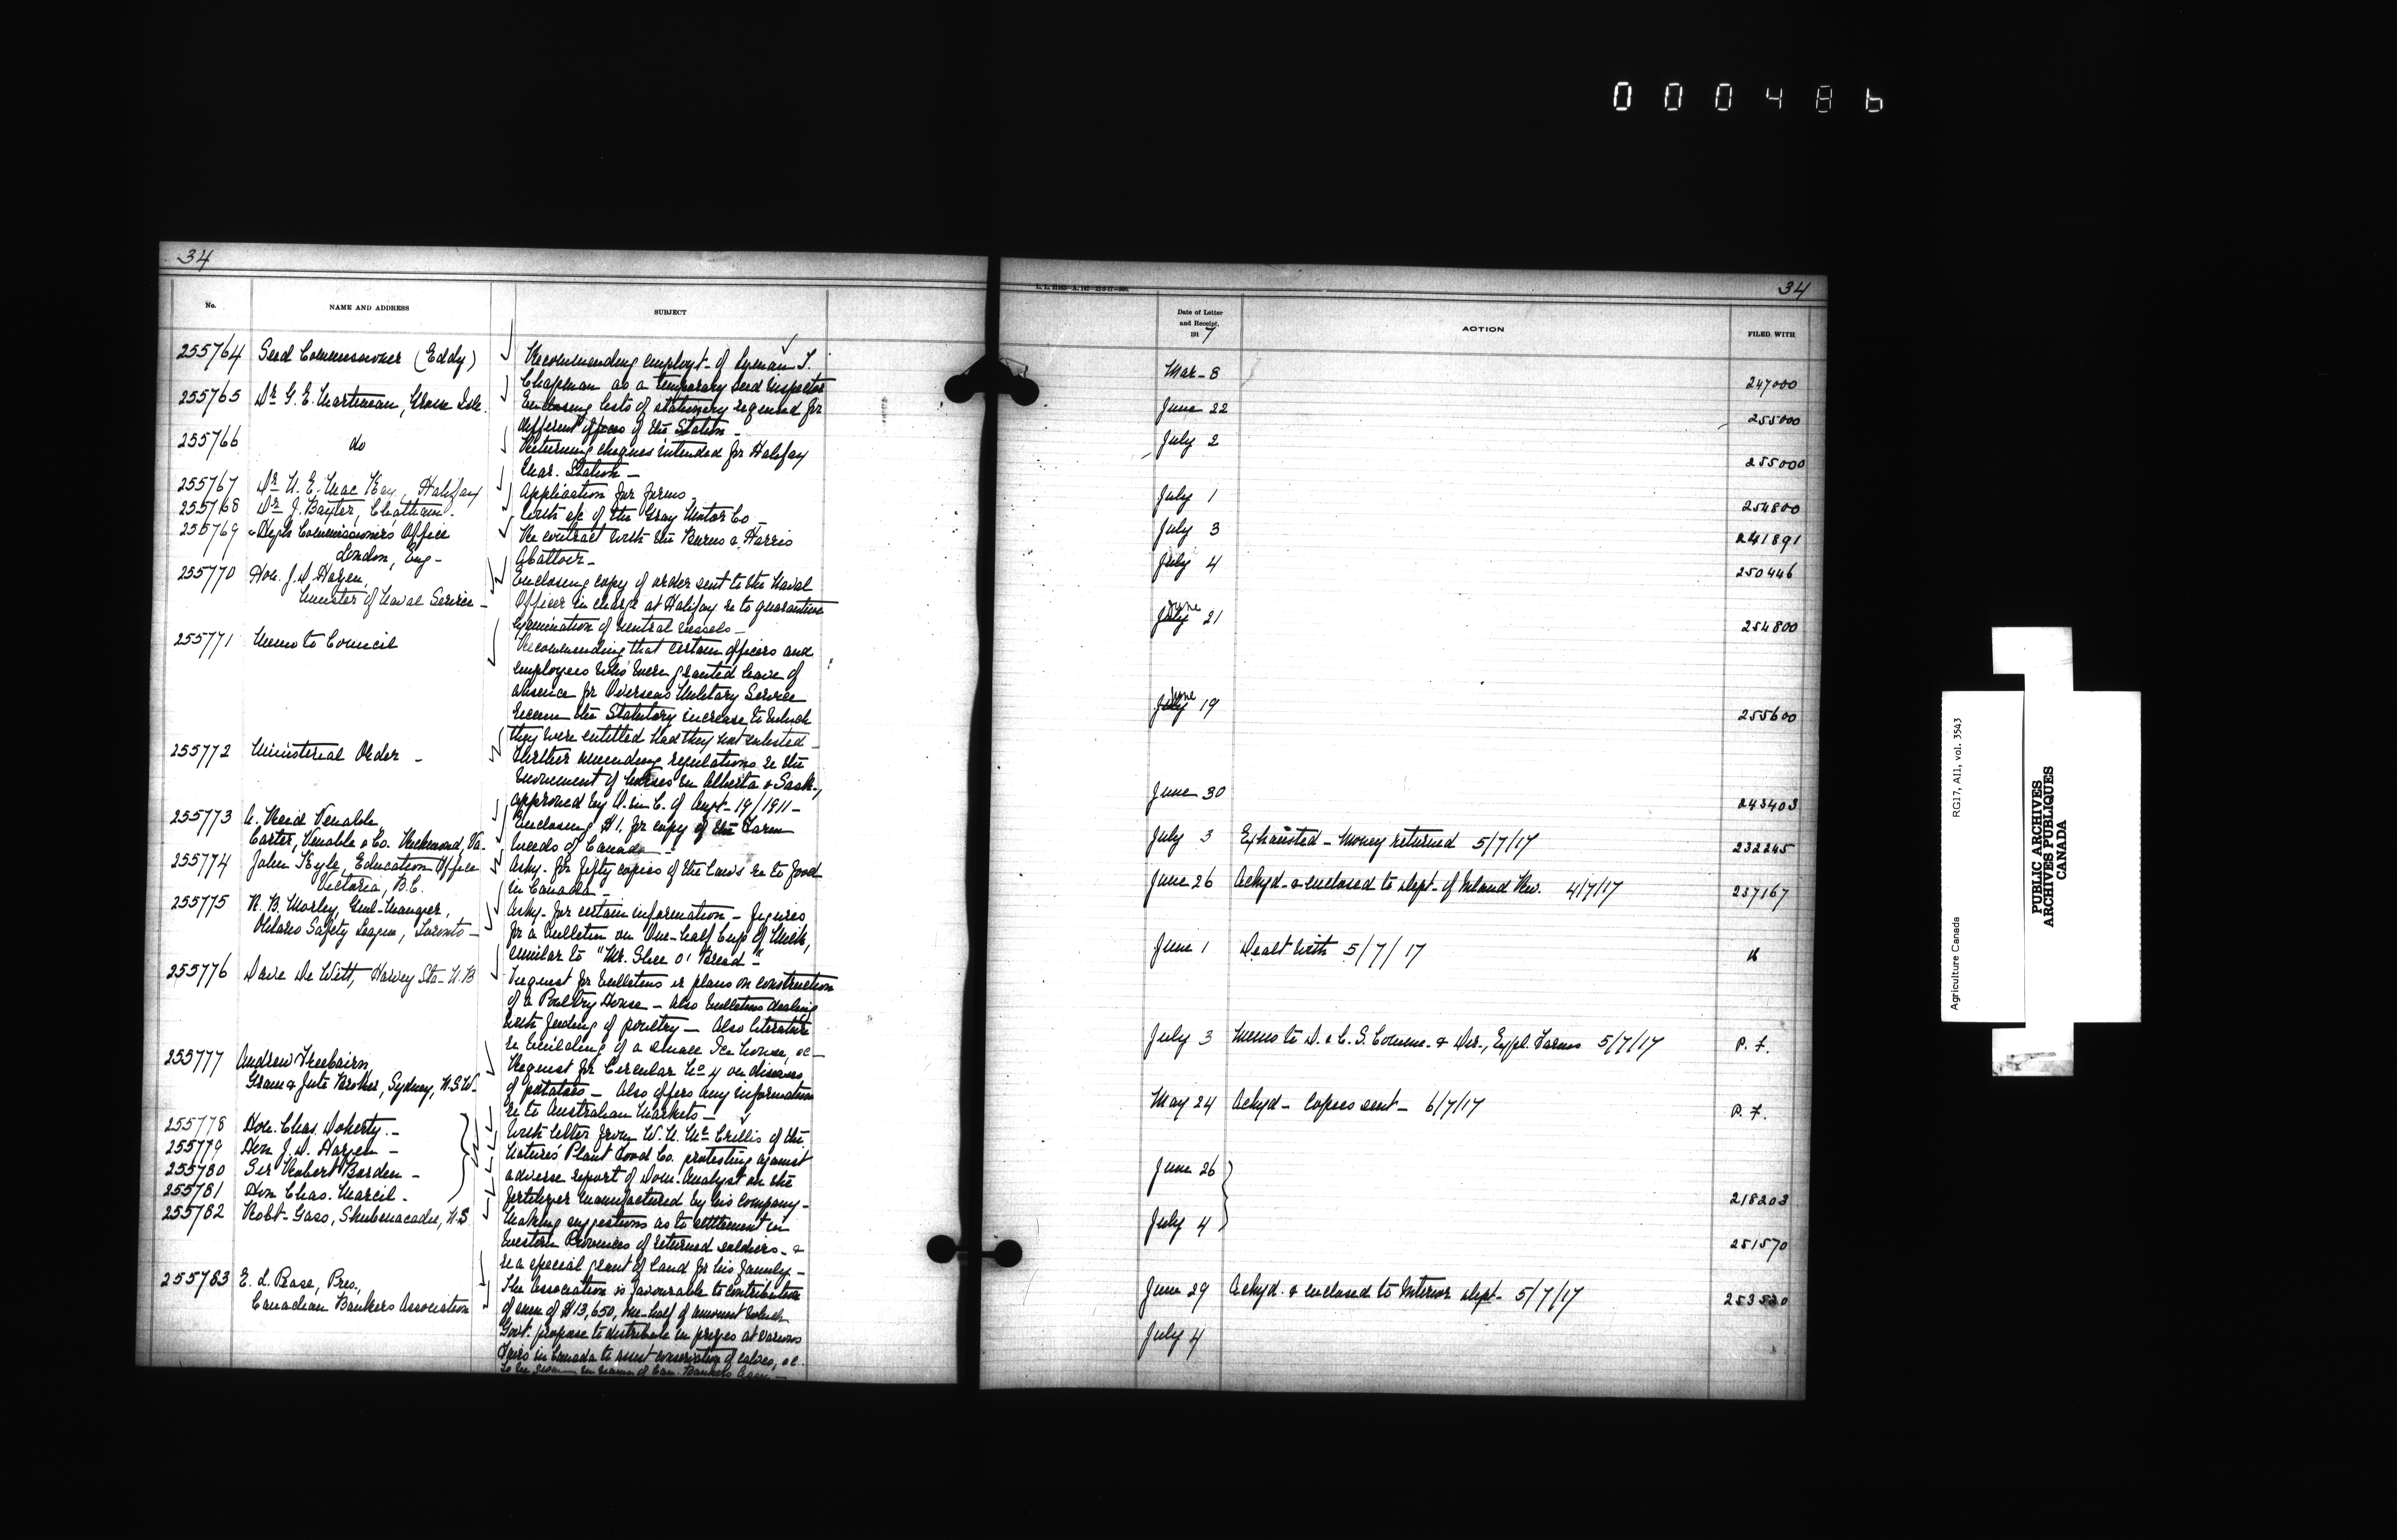 000486
34
No.
NAME AND ADDRESS
SUBJECT
255764 Seed Commissioner (Eddy)
Recommending employt. of Lyman T.
Chapman as a temporary seed inspector
255765 Dr. G. E. Martineau, Grosse Isle.
Enclosing lists of stationery required for
different offices of the Station —
255766 do
Returning cheques intended for Halifax
Quar. Station —
255767 Dr. N. E. MacKay, Halifax
Application for forms —
255768 Dr. J. Baxter, Chatham.
With a/c of the Gray Motor Co —
255769 High Commissioner's Office
London, Eng —
Re contract with the Burns & Harris
Abattoir —
255770 Hon. J. D. Hazen,
Minister of Naval Service —
Enclosing copy of order sent to the Naval
Officer in charge at Halifax re to quarantine
examination of neutral vessels —
255771 Memo to Council
Recommending that certain officers and
employees who were granted leave of
absence for Overseas Military Service
receive the Statutory increase to which
they were entitled had they not enlisted —
255772 Ministerial Order —
Further amending regulations re the
movement of horses in Alberta & Sask.,
approved by O. in C. of Sept. 19/1911 —
255773 A. Reid Venable
Carter, Venable & Co. Richmond, Va.
Enclosing $1. for copy of the Farm
Weeds of Canada —
255774 John Kyle, Education Office
Victoria, B.C.
Askg. for fifty copies of the laws re to food
in Canada —
255775 R. B. Morley, Genl-Manager,
Ontario Safety League, Toronto —
Askg. for certain information — figures
for a bulletin on One-half Cup of Milk,
similar to "Mr. Slice o' Bread" —
255776 Dave De Witt, Harvey Sta — N.B
Request for bulletins or plans on construction
of a Poultry House — Also bulletins dealing
with feeding of poultry — Also literature
re building of a small Ice house, &c —
255777 Andrew Freebairn,
Grain & Jute Broker, Sydney, N.S.W.
Request for Circular No. 4 on diseases
of potatoes — Also offers any information
re to Australian Markets —
255778 Hon. Chas. Doherty —
255779 Hon J. D. Hazen —
255780 Sir Robert Borden —
255781 Hon Chas. Marcil —
With letter from W. A. McCrillis of the
Nature's Plant Food Co. protesting against
adverse report of Dom. Analyst on the
fertilizer manufactured by his company —
255782 Robt. Gass, Shubenacadie, N.S
Making suggestions as to settlement in
Western Provinces of returned soldiers — &
re a special grant of land for his family —
255783 E. L. Pease, Pres.,
Canadian Bankers Association
The Association is favourable to contribution
of sum of $13,650, one-half of amount which
Govt. propose to distribute in prizes at various
Fairs in Canada to assist conservation of calves, &c.
to be given in name of Can. Bankers Assn —
34
Date of Letter
and Receipt,
1917
ACTION
FILED WITH
Mar — 8 247000
June 22 255000
July 2 255000
July 1 254800
July 3 241891
July 4 250446
June 21 254800
June 19 255600
June 30 243403
July 3 Exhausted — Money returned 5/7/17 232245
June 26 Ackgd. & enclosed to dept. of Inland Rev. 4/7/17 237167
June 1 Dealt with 5/7/17
July 3 Memo to D. & C. S. Comm. & Dir., Expl. Farms 5/7/17 P. F.
May 24 Ackgd — Copies sent — 6/7/17 P. F.
June 26
July 4
218203
251570
June 29 Ackgd. & enclosed to Interior dept — 5/7/17 253520
July 4
Agriculture Canada
RG17, AI1, vol. 3543
PUBLIC ARCHIVES
ARCHIVES PUBLIQUES
CANADA